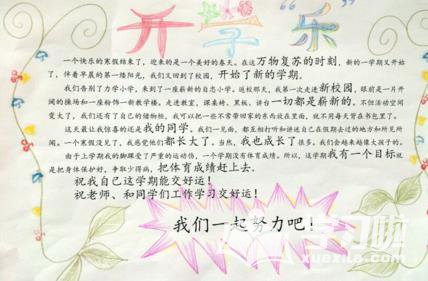 开学乐
一个快乐的寒假结束了，迎来的是一个美好的春天。在这万物复苏的时刻，新的一学期又开始
了，伴着早晨的第一缕阳光，我们又回到了校园，开始了新的学期。
我们告别了力学小学，来到了一座崭新的自在小学。返校那天，我第一次走进新校园，眼前是一片开
阔的操场和一座粉饰一新教学楼。走进教室，课桌椅、黑板、讲台一切都是崭新的，不但活动空间
变大了，我们还有了自己的储物柜，我可以把一些不常带回家的东西放在里面，就不用每天背在书包里了。
这天最让我惊喜的还是我的同学，我们一见面，都互相打听和讲述自己在假期去过的地方和所见所
闻。一个寒假没见了，我感觉他们都长大了，当然，我也成长了很多。我们会越来越懂大孩子的。
由于上学期我的脚踝受了严重的运动伤，一个学期没有体育成绩。所以，这学期我有一个目标就
是把身体保护好，争取少得病，把体育成绩赶上去。
祝我自己这学期能交好运！
祝老师、和同学们工作学习交好运！
我们一起努力吧！
学习啦
xuexila.com